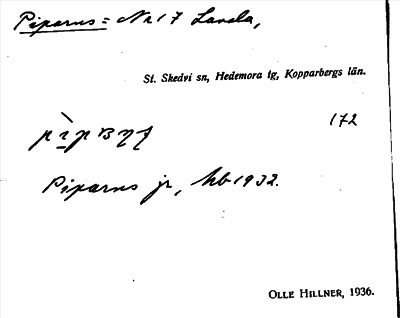 Piparns = Nr 17 Lavela,
St. Skedvi sn, Hedemora tg, Kopparbergs län.
172
Piparns jr, hb 1932.
OLLE HILLNER, 1936.